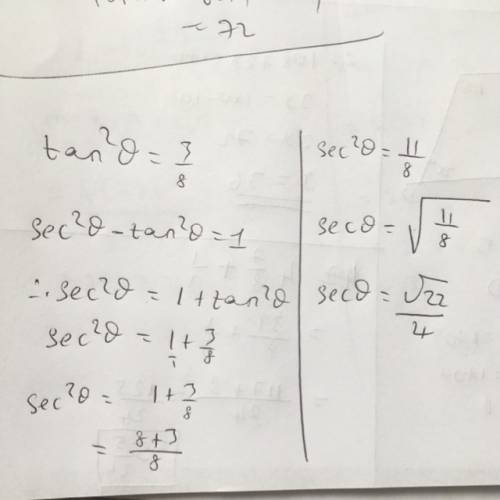 = 72
tan²θ = 3/8
sec²θ - tan²θ = 1
∴ sec²θ = 1 + tan²θ
sec²θ = 1/1 + 3/8
sec²θ = 1 + 3/8
= (8+3)/8
sec²θ = 11/8
secθ = √(11/8)
secθ = √22/4